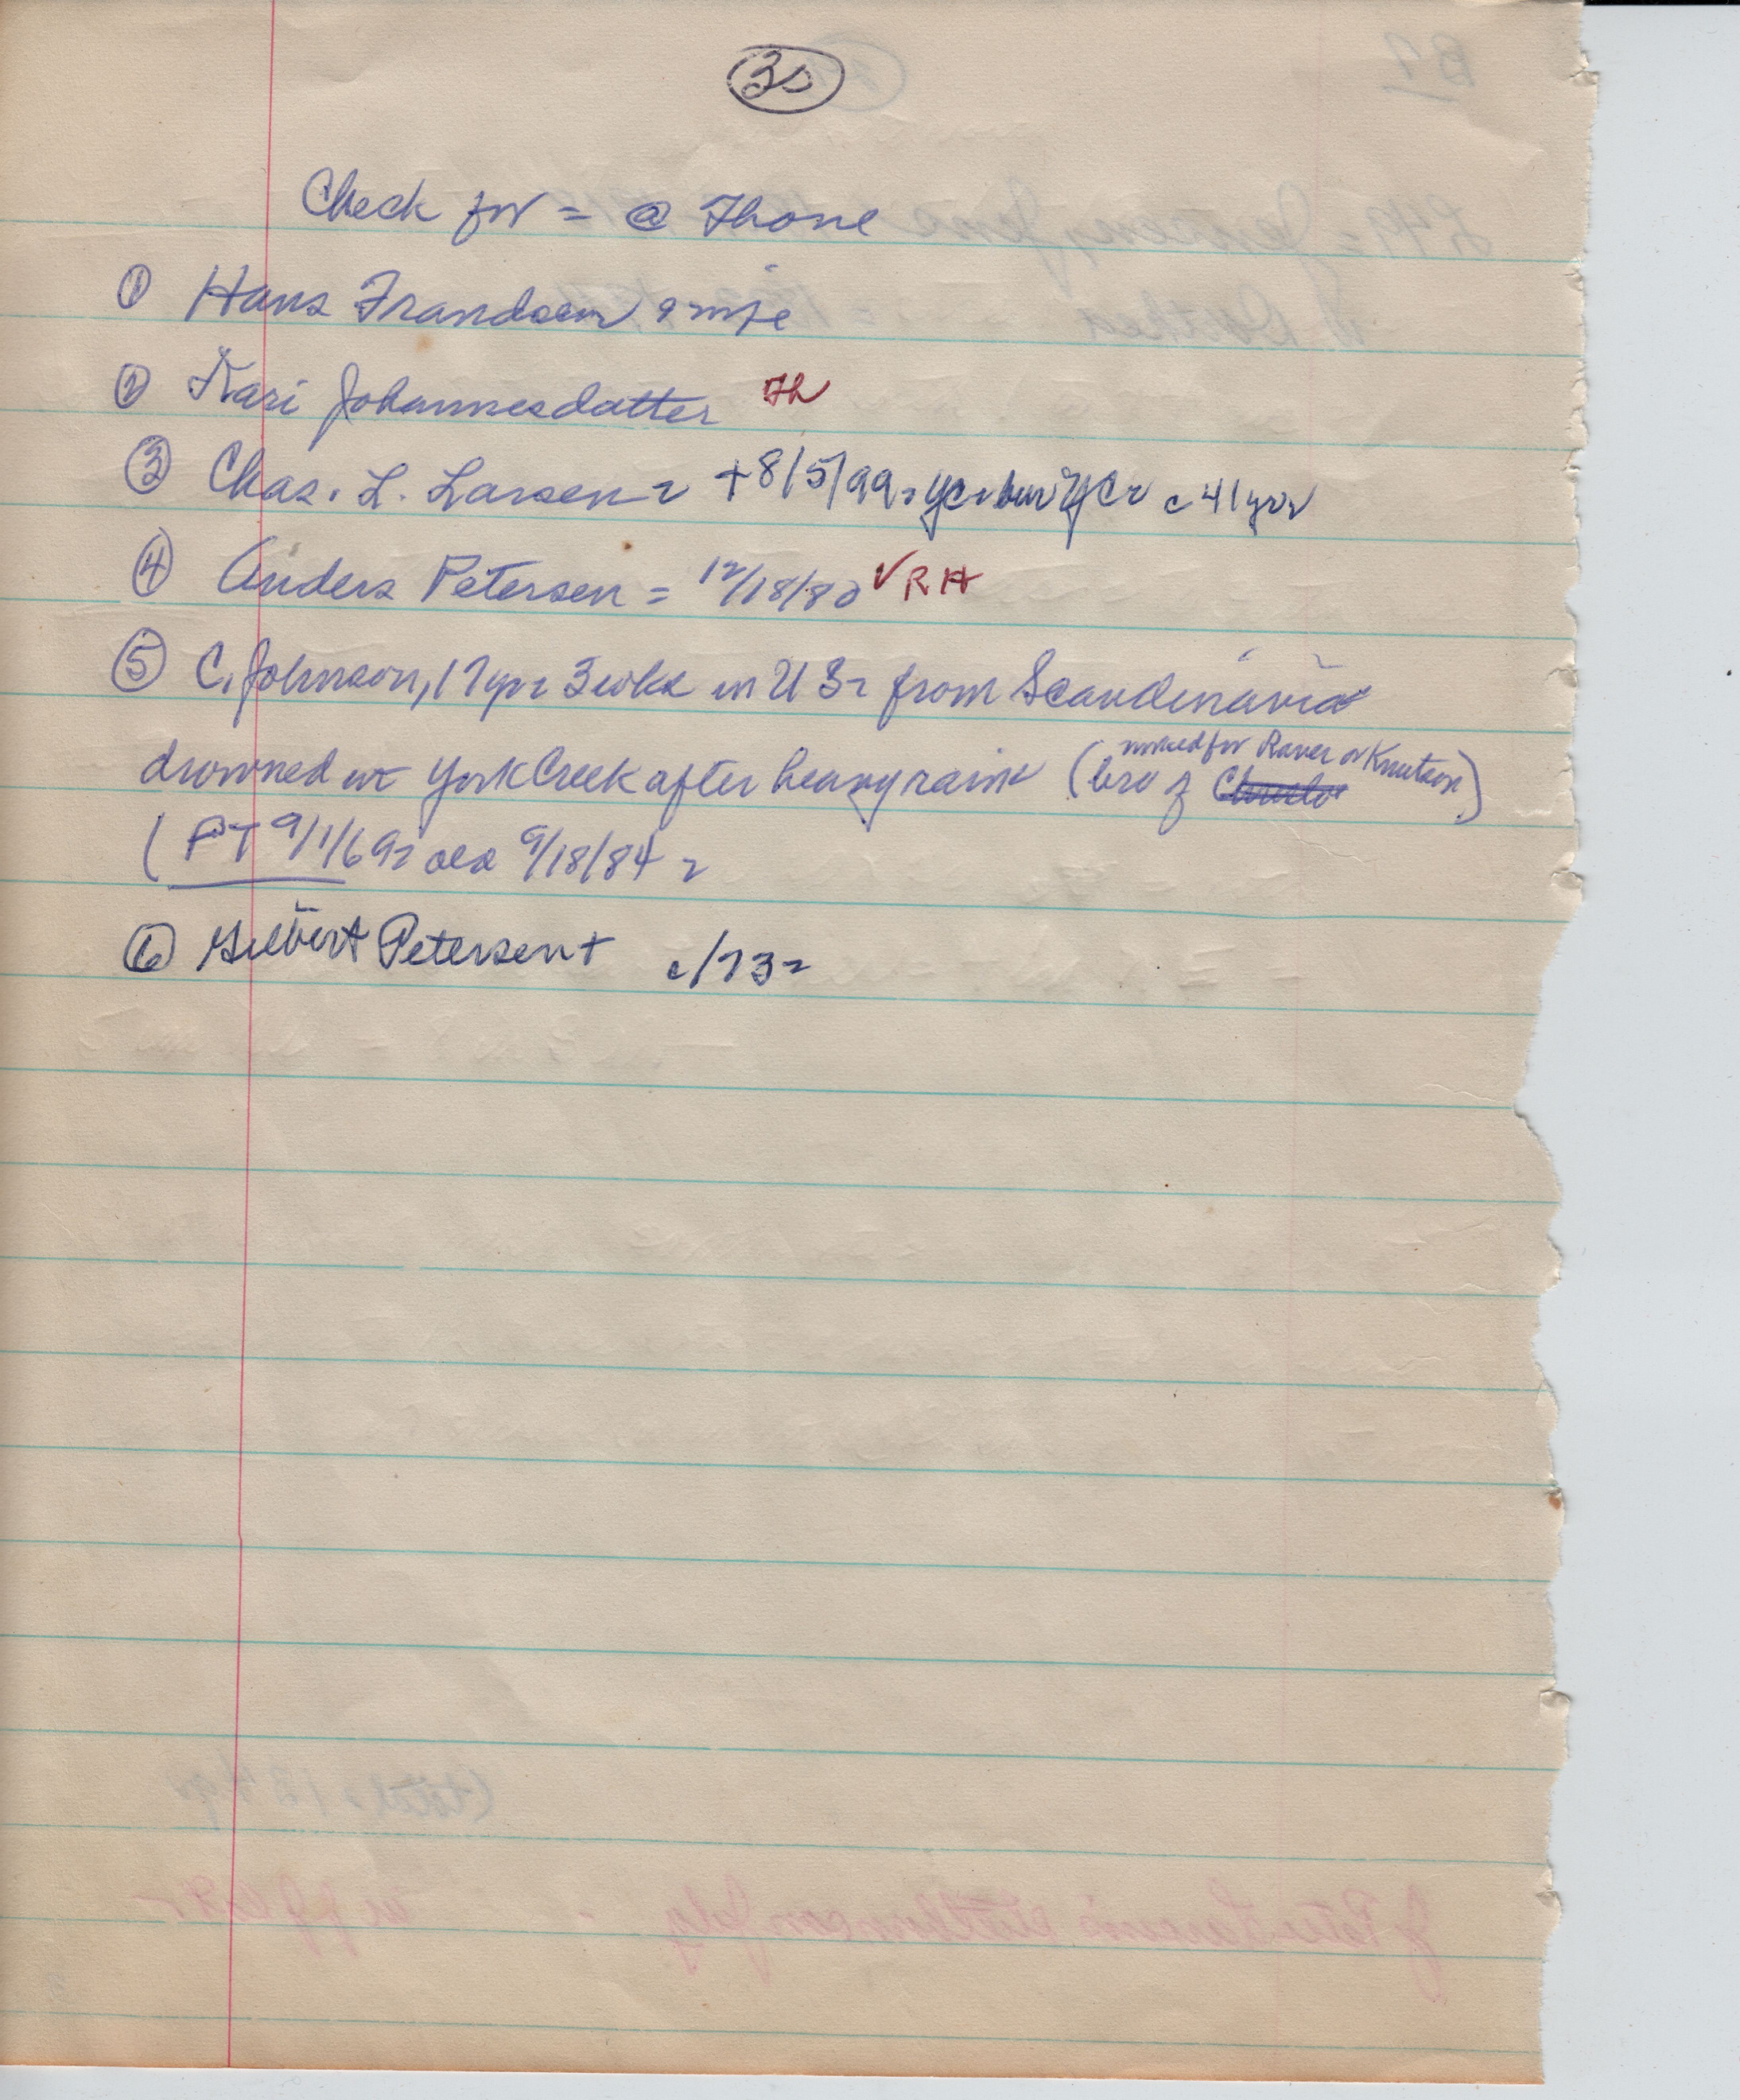 3s
Check for = @ Thone
① Hans Frandsen & wife
② Kari Johannesdatter Th
③ Chas. L. Larsen = + 8/5/99 = YC = bur YC = c 41 yrs
④ Anders Petersen = 12/18/80 ✓ RH
⑤ C. Johnson, 17 yrs 3 wks in US = from Scandinavia
worked for Raver or Knutson
drowned in York Creek after heavy rains (bro of
(PT 9/1/69 = also 9/18/84 =
⑥ Gilbert Petersen + c/73 =